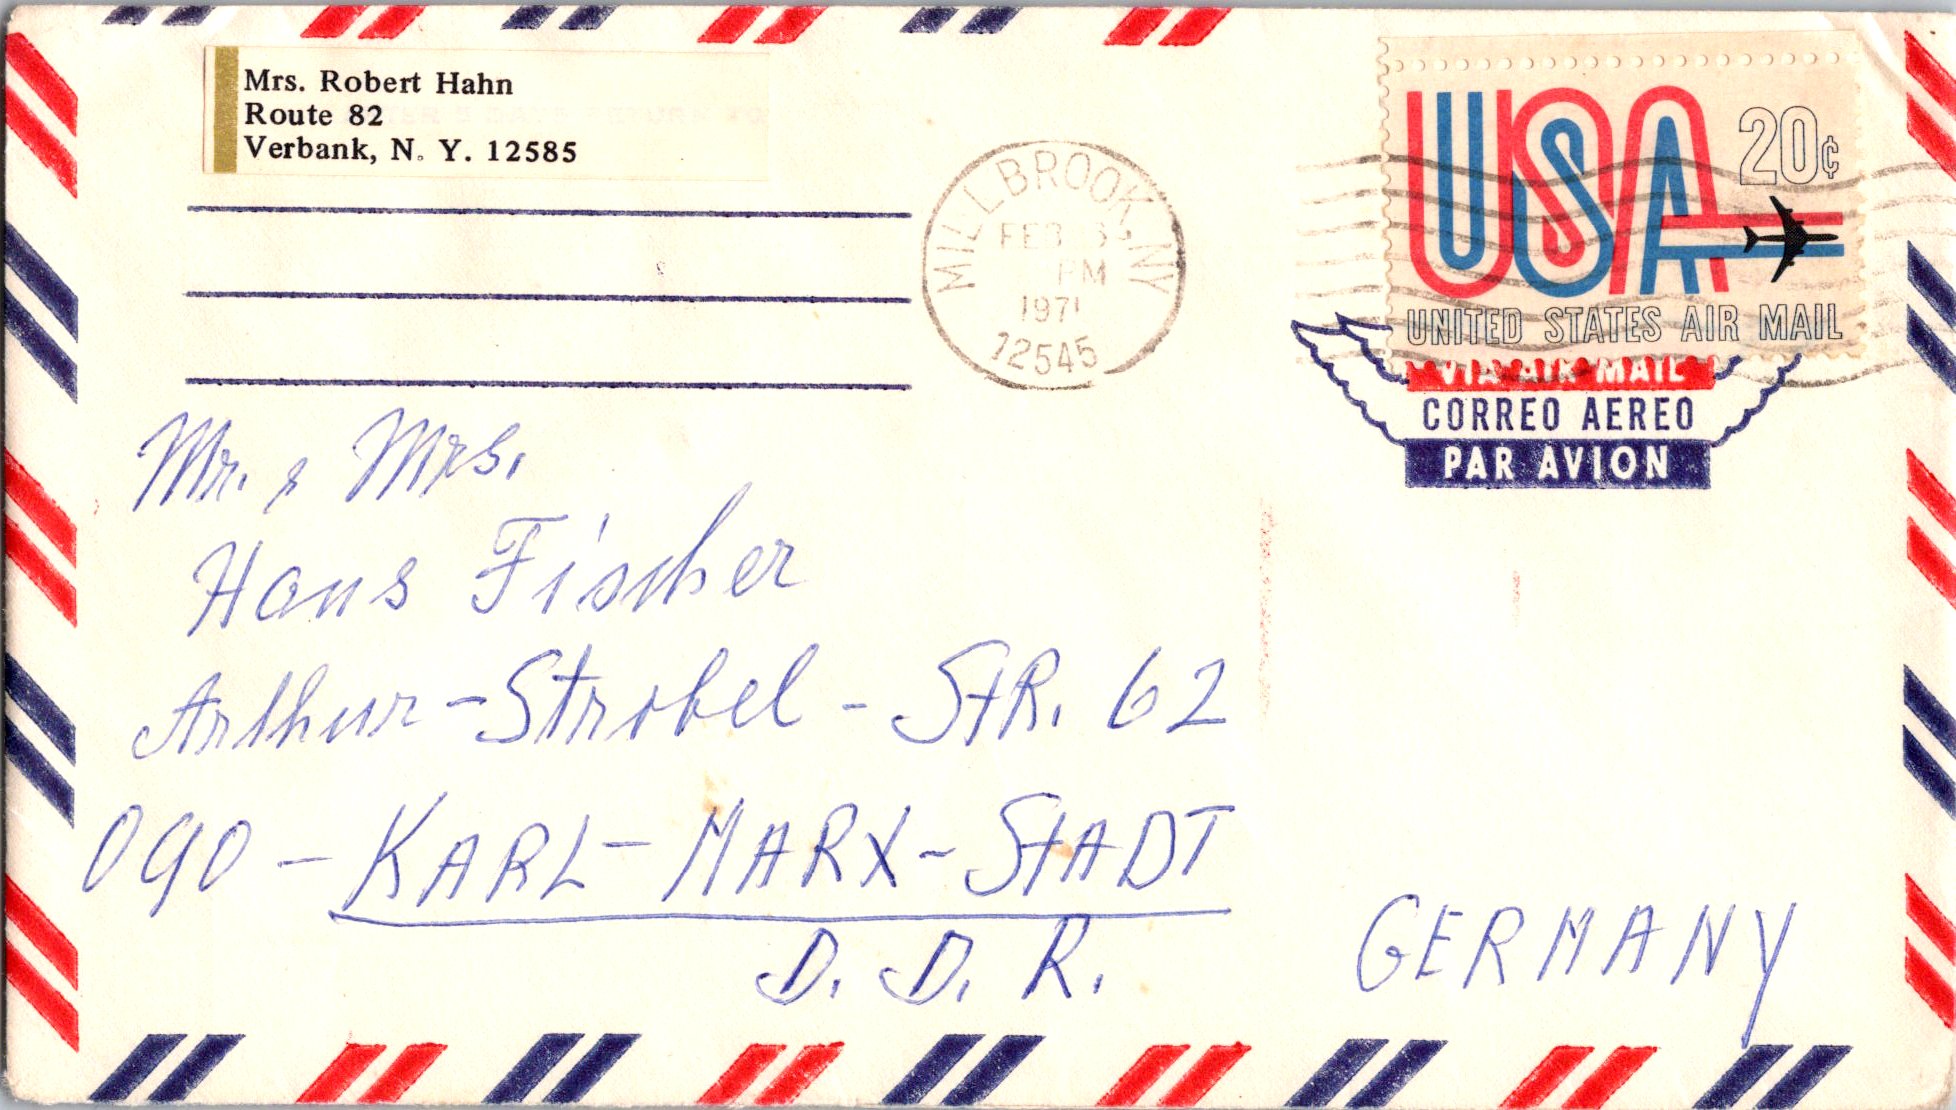 Mrs. Robert Hahn
Route 82
Verbank, N. Y. 12585
MILLBROOK, NY
FEB
PM
1971
12545
USA 20¢
UNITED STATES AIR MAIL
VIA AIR MAIL
CORREO AEREO
PAR AVION
Mr. & Mrs.
Hans Fischer
Arthur-Strobel-STR. 62
090 - KARL-MARX-STADT
D. D. R.
GERMANY